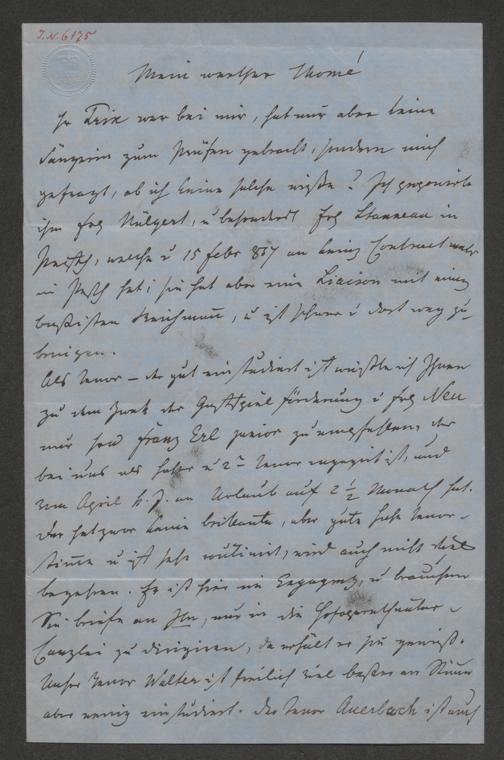 I.N. 6175
Mein werther Thomé
Hr Erik war bei mir, hat mir aber keine
Sängerin zum Prüfen gebracht, sondern mich
gefragt, ob ich keine solche wisse? Ich
ihm Frl , u besonders Frl in
Pesth, welche v 15 Febr 857 an keinen Contract mehr
in Pesth hat; sie hat aber eine Liaison mit einem
, u ist schwer v dort weg zu
bringen.
Als Tenor – der gut einstudiert ist wüßte ich Ihnen
zu dem Zweck der Gastspiel u Frl Ney
nur Franz Erl junior zu empfehlen, der
bei uns als u 2ter Tenor engagirt ist, und
vom April k. J. an Urlaub auf 2 1/2 Monath hat.
Der hat zwar keine brillante, aber gute hohe Tenor-
stimme u ist sehr routinirt, wird auch nicht viel
begehren. Er ist hier im Engagement, u brauchen
Sie briefe an Ihn, nur in die Hofoperntheater-
Canzlei zu dirigiren, da erhält er sie gewiß.
Unser Tenor Walter ist freilich viel besser an Stimme
aber wenig einstudiert. Der Tenor Auerbach ist auch